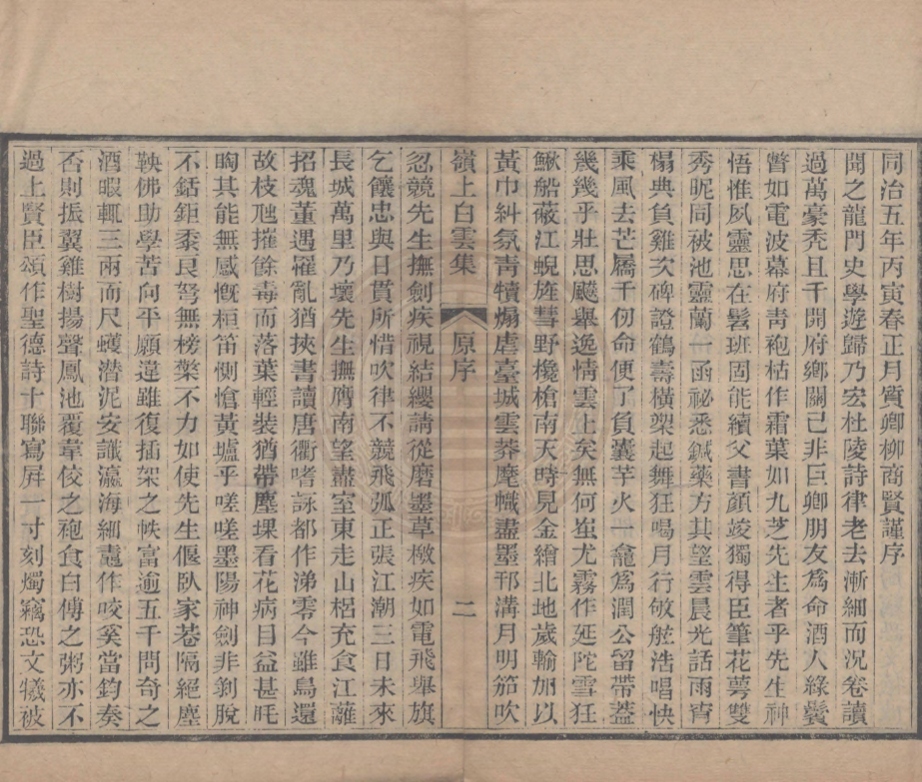 同治五年丙寅春正月質卿柳商賢謹序
聞之龍門史學遊歸乃宏杜陵詩律老去漸細而況卷讀
過萬豪禿且千開府鄉關已非巨卿朋友為命酒人綠鬢
瞥如電波幕府青袍枯作霜葉如九芝先生者乎先生神
悟惟夙靈思在髫班固能續父書顏竣獨得臣筆花萼雙
秀昵同被池靈蘭一函祕悉鍼藥方其望雲晨光話雨宵
榻典負雞次碑證鶴壽橫槊起舞狂喝月行敂舷浩唱快
乘風去芒屩千仞命便了負囊芋火一龕為潤公留帶蓋
幾幾乎壯思飇舉逸情雲上矣無何蚩尤霧作延陀雪狂
鰍船蔽江蜺旌彗野欃槍南天時見金繒北地歲輸加以
黃巾糾氛青犢煽虐臺城雲莽麾幟盡墨邗溝月明笳吹
嶺上白雲集 原序 二
忽競先生撫劍疾視結纓請從磨墨草檄疾如電飛舉旗
乞饟忠與日貫所惜吹律不競飛弧正張江潮三日未來
長城萬里乃壞先生撫膺南望盡室東走山梠充食江蘺
招魂董遇罹亂猶挾書讀唐衢嗜詠都作涕零今雖鳥還
故枝虺摧餘毒而落葉輕裝猶帶塵堁看花病目益甚眊
眴其能無感慨桓笛惻愴黃壚乎嗟嗟墨陽神劍非剝脫
不銛鉅黍良弩無榜檠不力如使先生偃臥家巷隔絕塵
鞅佛助學苦向平願違雖復插架之帙富逾五千問奇之
酒暇輒三兩而尺蠖潛泥安識瀛海細蠹作咬奚當鈞奏
否則振翼雞樹揚聲鳳池覆韋佼之袍食白傅之粥亦不
過上賢臣頌作聖德詩十聯寫屏一寸刻燭竊恐文犧被